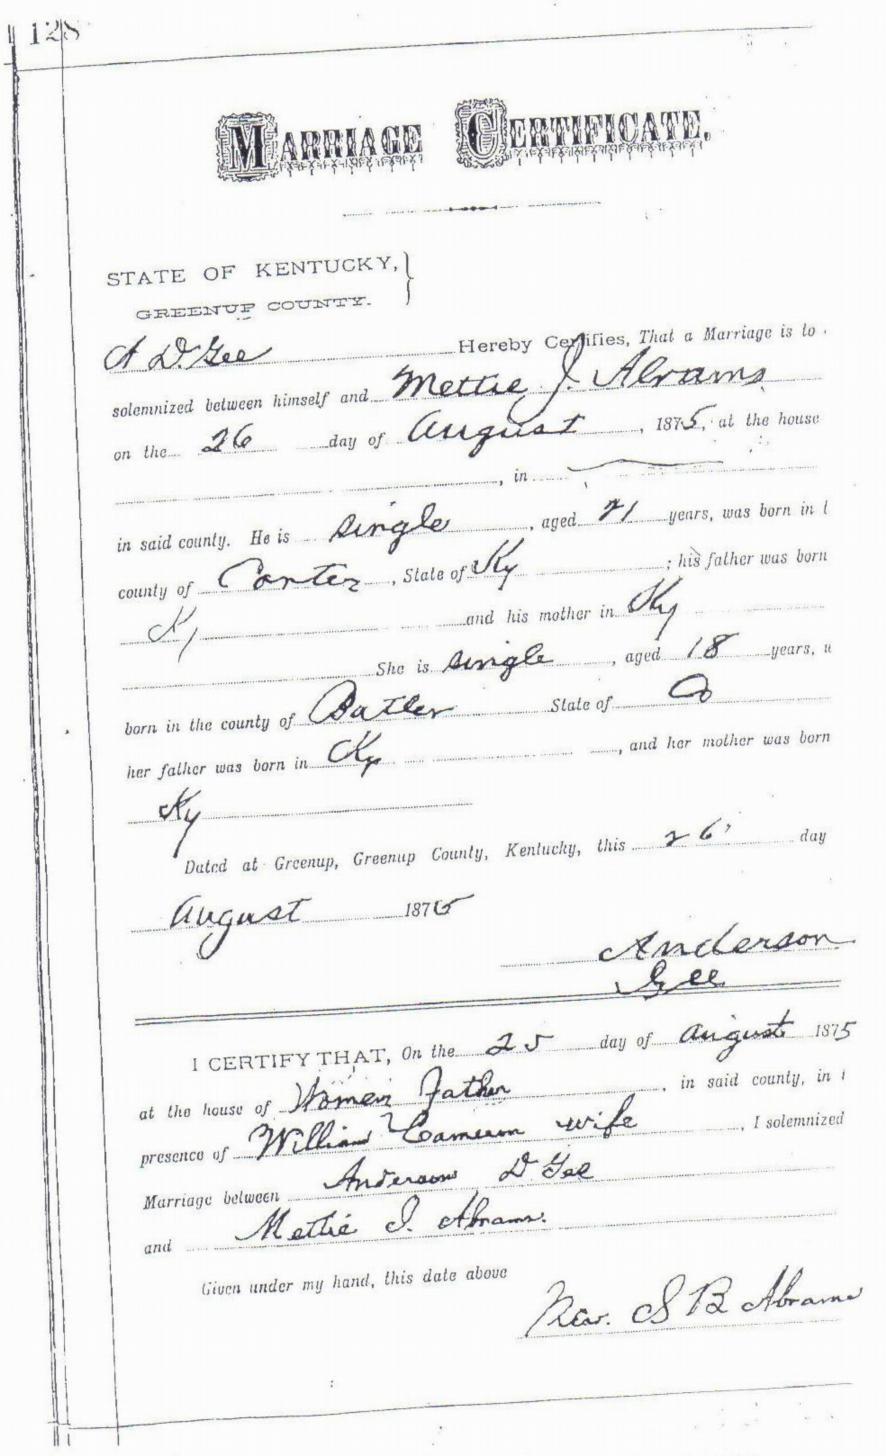 128
MARRIAGE CERTIFICATE.
STATE OF KENTUCKY, }
GREENUP COUNTY.
A D. Gee Hereby Certifies, That a Marriage is to
solemnized between himself and Mettie J. Abrams
on the 26 day of August, 1875, at the house
, in
in said county. He is single, aged 21 years, was born in t
county of Carter, State of Ky; his father was born
Ky and his mother in Ky
She is single, aged 18 years, w
born in the county of Butler State of O
her father was born in Ky, and her mother was born
Ky
Dated at Greenup, Greenup County, Kentucky, this 26 day
August 1875
Anderson
Gee
I CERTIFY THAT, On the 25 day of August 1875
at the house of Women Father, in said county, in t
presence of William Cameron wife, I solemnized
Marriage between Anderson D Gee
and Mettie J. Abrams.
Given under my hand, this date above
Rev. S B Abrams